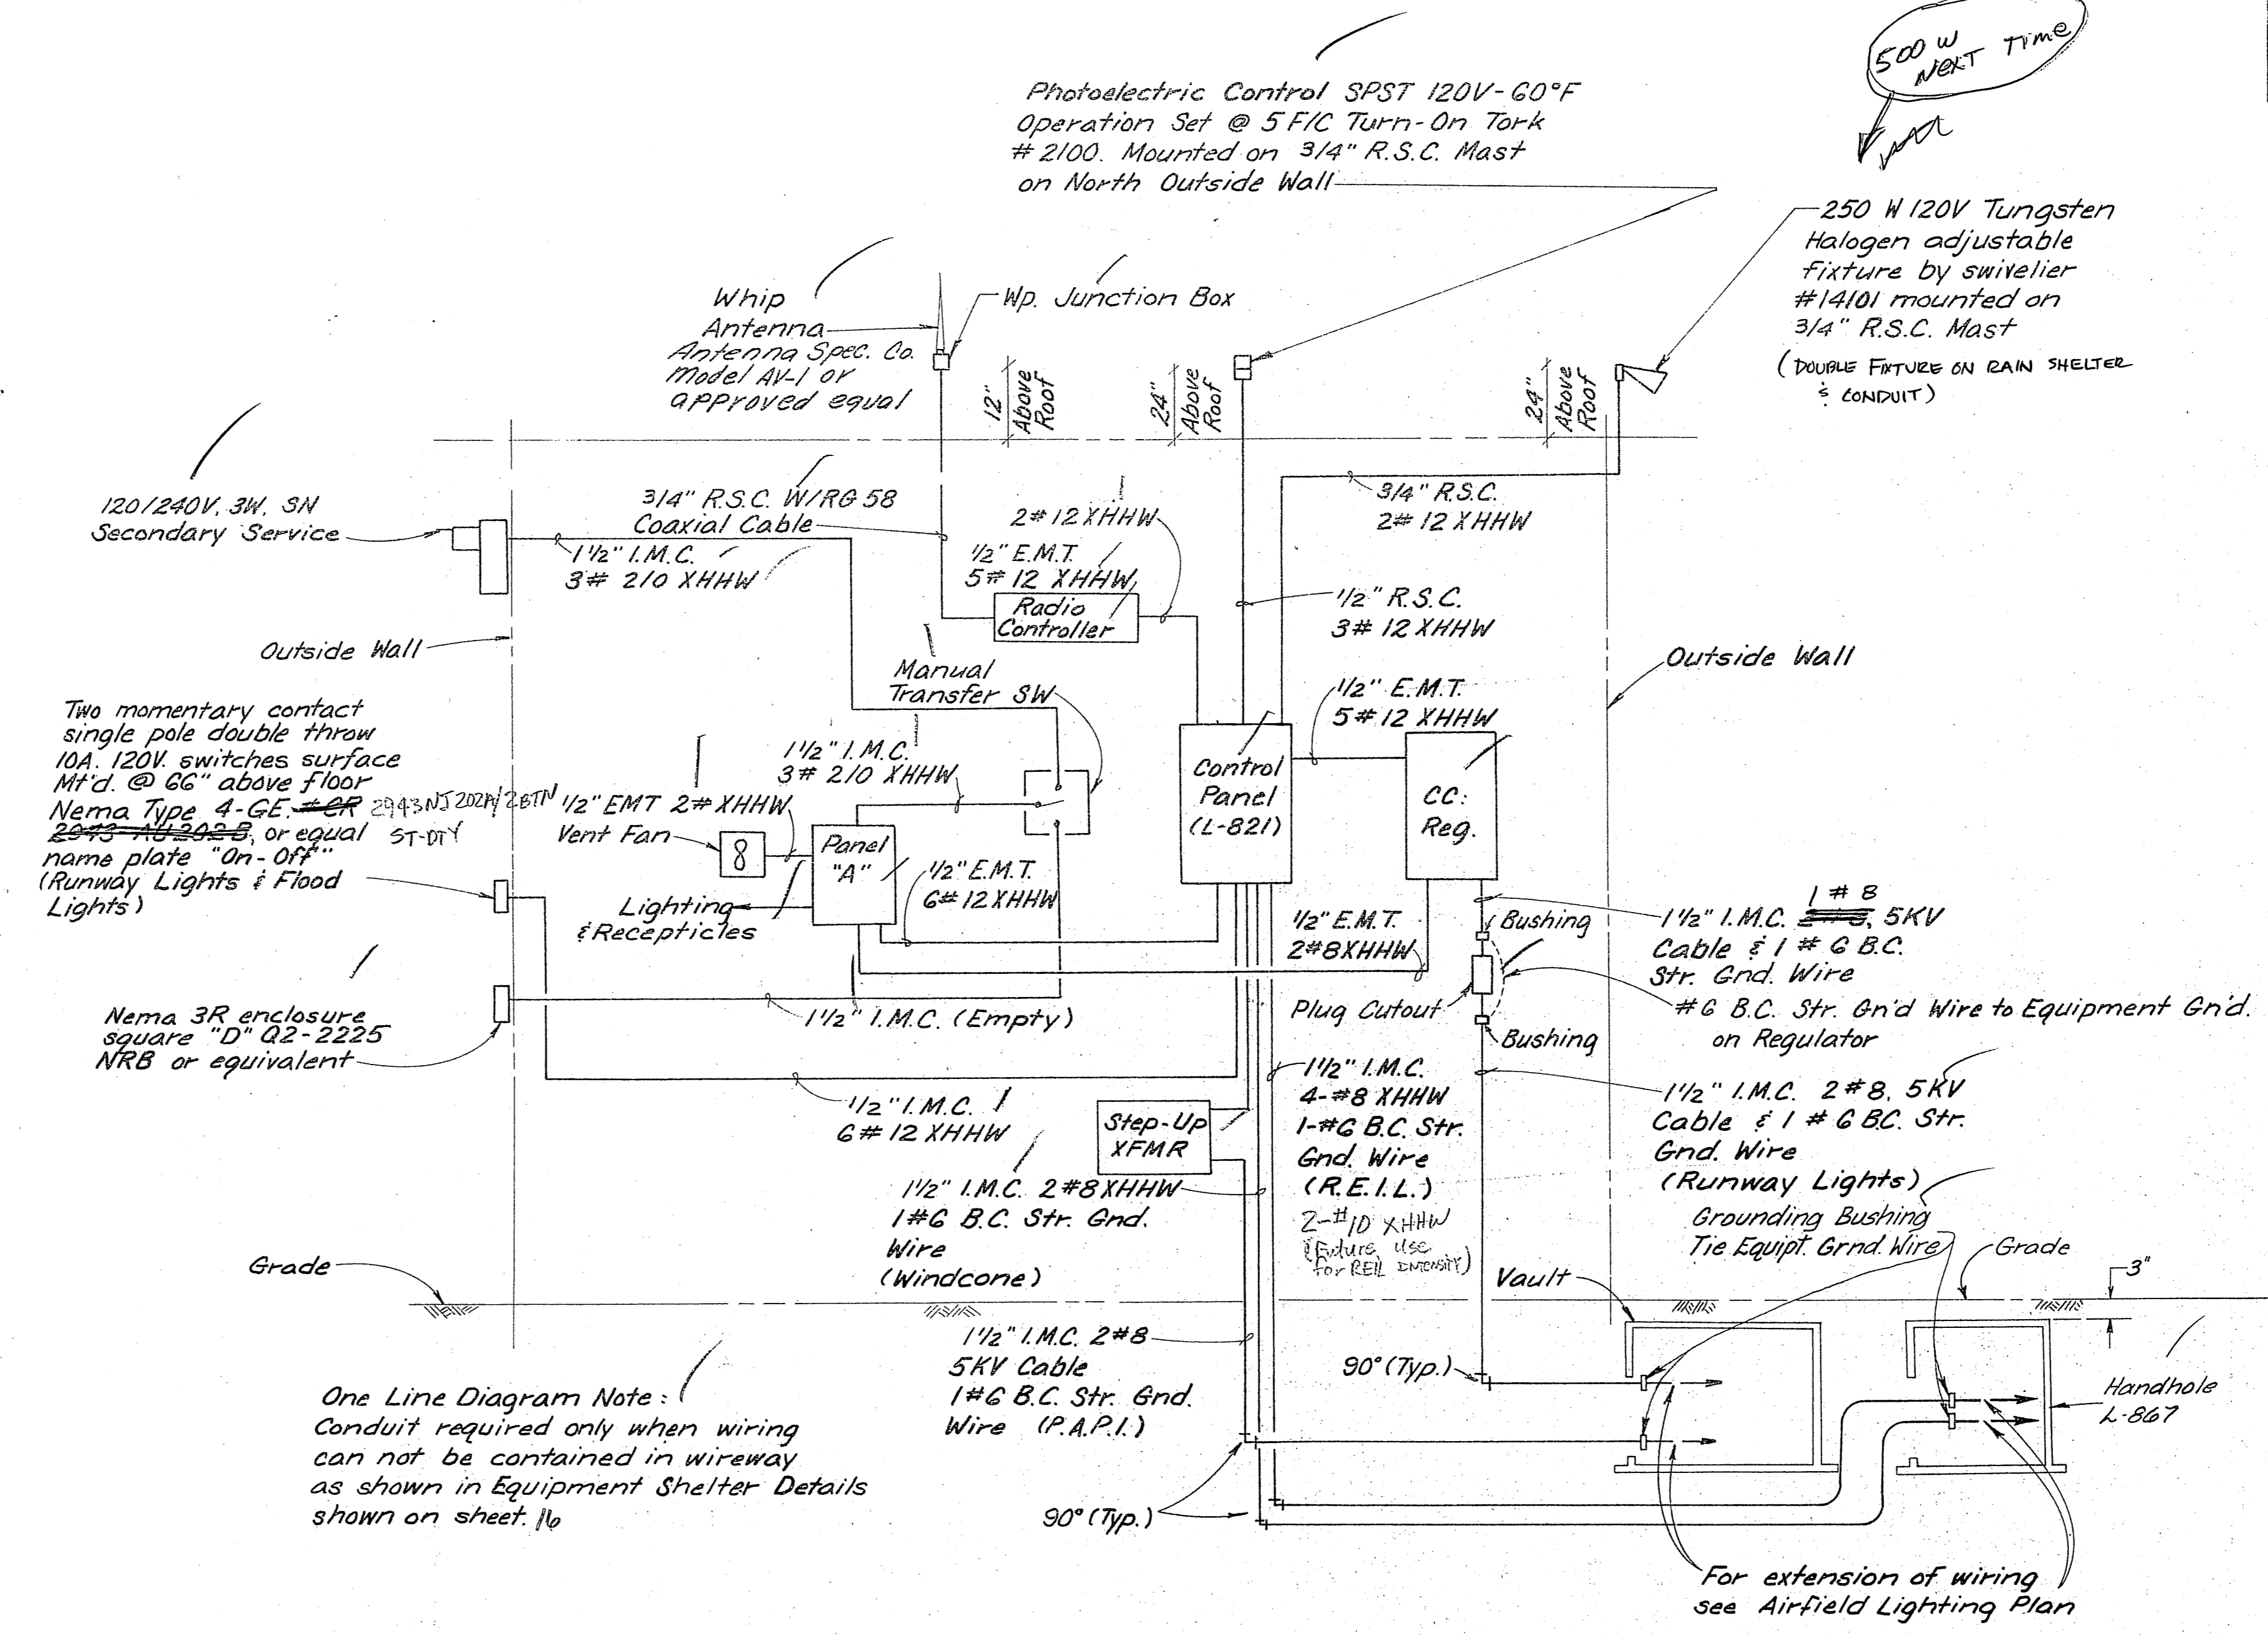 500 W
NEXT TIME
Photoelectric Control SPST 120V-60°F
Operation Set @ 5 F/C Turn-On Tork
# 2100. Mounted on 3/4" R.S.C. Mast
on North Outside Wall
250 W 120V Tungsten
Halogen adjustable
fixture by swivelier
#14101 mounted on
3/4" R.S.C. Mast
(DOUBLE FIXTURE ON RAIN SHELTER
& CONDUIT)
Whip
Antenna
Antenna Spec. Co.
Model AV-1 or
approved equal
Wp. Junction Box
12"
Above
Roof
24"
Above
Roof
24"
Above
Roof
120/240V, 3W, SN
Secondary Service
3/4" R.S.C. W/RG 58
Coaxial Cable
1½" I.M.C.
3# 2/0 XHHW
2# 12 XHHW
½" E.M.T.
5# 12 XHHW
Radio
Controller
3/4" R.S.C.
2# 12 XHHW
½" R.S.C.
3# 12 XHHW
Outside Wall
Outside Wall
Manual
Transfer SW
½" E.M.T.
5# 12 XHHW
Two momentary contact
single pole double throw
10A. 120V. switches surface
Mt'd. @ 66" above floor
Nema Type 4-GE. #CR 2943NJ202A/2BTN
2943-AU202B, or equal ST-DTY
name plate "On-Off"
(Runway Lights & Flood
Lights)
1½" I.M.C.
3# 2/0 XHHW
½" EMT 2# XHHW
Vent Fan
8
Panel
"A"
Control
Panel
(L-821)
CC.
Reg.
½" E.M.T.
6# 12 XHHW
Lighting
& Recepticles
½" E.M.T.
2#8XHHW
Bushing
Plug Cutout
Bushing
1 # 8
1½" I.M.C. 5KV
Cable & 1 # 6 B.C.
Str. Gnd. Wire
#6 B.C. Str. Gn'd Wire to Equipment Gn'd.
on Regulator
Nema 3R enclosure
square "D" Q2-2225
NRB or equivalent
1½" I.M.C. (Empty)
½" I.M.C.
6# 12 XHHW
Step-Up
XFMR
1½" I.M.C.
4-#8 XHHW
1-#6 B.C. Str.
Gnd. Wire
(R.E.I.L.)
2-#10 XHHW
(Future Use
for REIL INTENSITY)
1½" I.M.C. 2#8, 5KV
Cable & 1 # 6 B.C. Str.
Gnd. Wire
(Runway Lights)
Grounding Bushing
Tie Equipt. Grnd. Wire
1½" I.M.C. 2#8XHHW
1#6 B.C. Str. Gnd.
Wire
(Windcone)
Grade
Vault
Grade
3"
1½" I.M.C. 2#8
5KV Cable
1#6 B.C. Str. Gnd.
Wire (P.A.P.I.)
90° (Typ.)
Handhole
L-867
One Line Diagram Note:
Conduit required only when wiring
can not be contained in wireway
as shown in Equipment Shelter Details
shown on sheet. 16
90° (Typ.)
For extension of wiring
see Airfield Lighting Plan